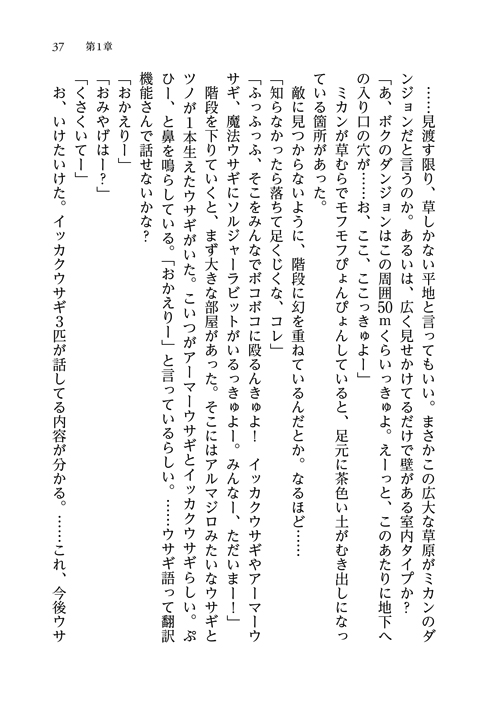 37　第1章
……見渡す限り、草しかない平地と言ってもいい。まさかこの広大な草原がミカンのダ
ンジョンだと言うのか。あるいは、広く見せかけてるだけで壁がある室内タイプか？
「あ、ボクのダンジョンはこの周囲50ｍくらいっきゅよ。えーっと、このあたりに地下へ
の入り口の穴が……お、ここ、ここっきゅよー」
ミカンが草むらでモフモフぴょんぴょんしていると、足元に茶色い土がむき出しになっ
ている箇所があった。
敵に見つからないように、階段に幻を重ねているんだとか。なるほど……
「知らなかったら落ちて足くじくな、コレ」
「ふっふっふ、そこをみんなでボコボコに殴るんきゅよ！　イッカクウサギやアーマーウ
サギ、魔法ウサギにソルジャーラビットがいるっきゅよー。みんなー、ただいまー！」
階段を下りていくと、まず大きな部屋があった。そこにはアルマジロみたいなウサギと
ツノが1本生えたウサギがいた。こいつがアーマーウサギとイッカクウサギらしい。ぷ
ひー、と鼻を鳴らしている。「おかえりー」と言っているらしい。……ウサギ語って翻訳
機能さんで話せないかな？
「おかえりー」
「おみやげはー？」
「くさくいてー」
お、いけたいけた。イッカクウサギ3匹が話してる内容が分かる。……これ、今後ウサ